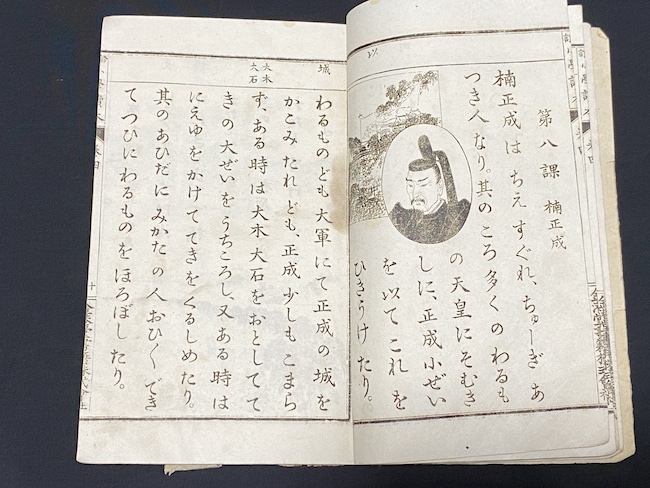 第八課 楠正成
楠正成はちえすぐれ、ちゅーぎあ
つき人なり。其のころ多くのわるも
の天皇にそむき
しに、正成小ぜい
を以てこれを
ひきうけたり。
以
城
わるものども大軍にて正成の城を
かこみたれども、正成少しもこまら
ず、ある時は大木大石をおとしてて
きの大ぜいをうちころし、又ある時は
にえゆをかけててきをくるしめたり。
其のあひだにみかたの人おひ〳〵でき
てつひにわるものをほろぼしたり。
大木
大石
十